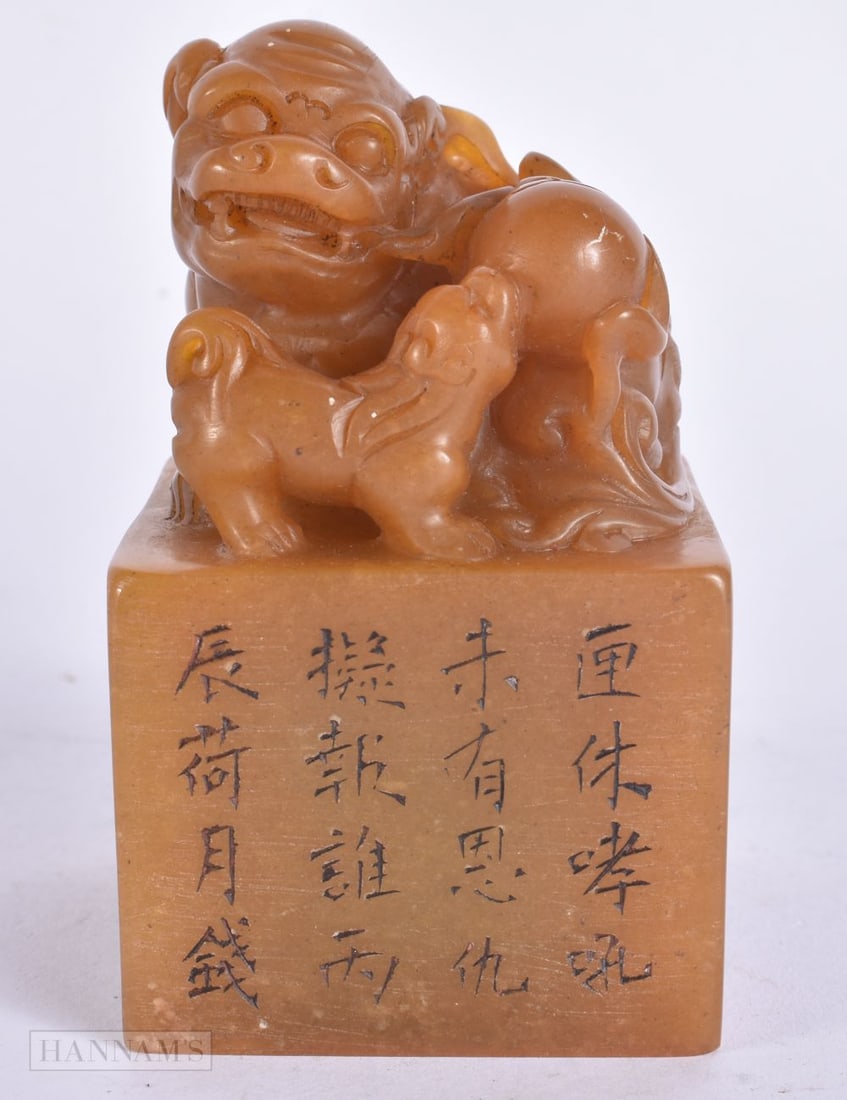 匣侏哮吼
未有恩仇
擬報誰丙
辰荷月錢
HANNAM'S